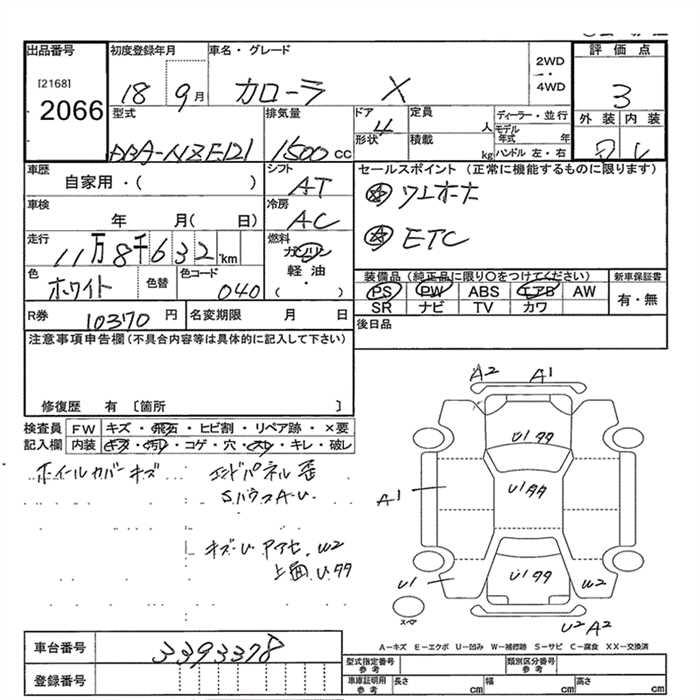 出品番号 初度登録年月 車名・グレード 2WD ・ 4WD 評価点
[2168]
2066 18 9月 カローラ X 3
型式 排気量 ドア 4 定員 人 ディーラー・並行 外装 内装
形状 積載 kg モデル年式 年 ハンドル 左・右
DBA-NZE121 1500 cc
車歴 シフト セールスポイント（正常に機能するものに限ります）
自家用・（ ） AT
車検 冷房
年 月（ 日） AC ETC
走行 燃料
11万8千632km ガソリン
色 色替 色コード 軽油 装備品（純正品に限り〇をつけてください） 新車保証書
ホワイト 040 （ ） PS PW ABS エアB AW 有・無
SR ナビ TV カワ
R券 10370 円 名変期限 月 日 後日品
注意事項申告欄（不具合内容等は具体的に記入して下さい）
修復歴 有 〔箇所 〕
検査員 FW キズ・飛石・ヒビ割・リペア跡・×要
記入欄 内装 キズ・コゲ・穴・キレ・破レ
A2 A1
ホイールカバーキズ エンドパネル歪
U177
A1 U1AA
キズ・U W2
上面 U.77
U1 U177 W2
スペア
U2 A2
A-キズ E-エクボ U-凹み W-補修跡 S-サビ C-腐食 XX-交換済
車台番号 3393378
登録番号
型式指定番号 参考 類別区分番号 参考
車庫証明用 参考 長さ cm 幅 cm 高さ cm